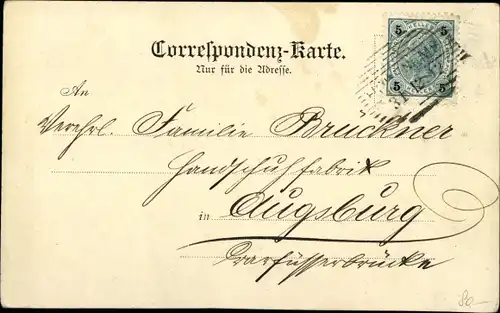 5 HELLER 5
Correspondenz-Karte.
Nur für die Adresse.
5 5
An
Verehrl. Familie Bruckner
Handschuhfabrik
in Augsburg
Barfüsserbrücke